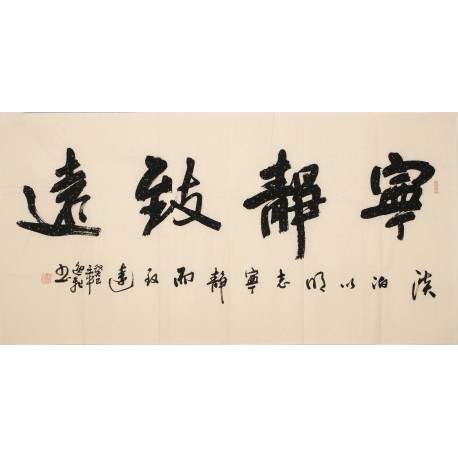 寧靜致遠
淡泊以明志寧靜而致遠